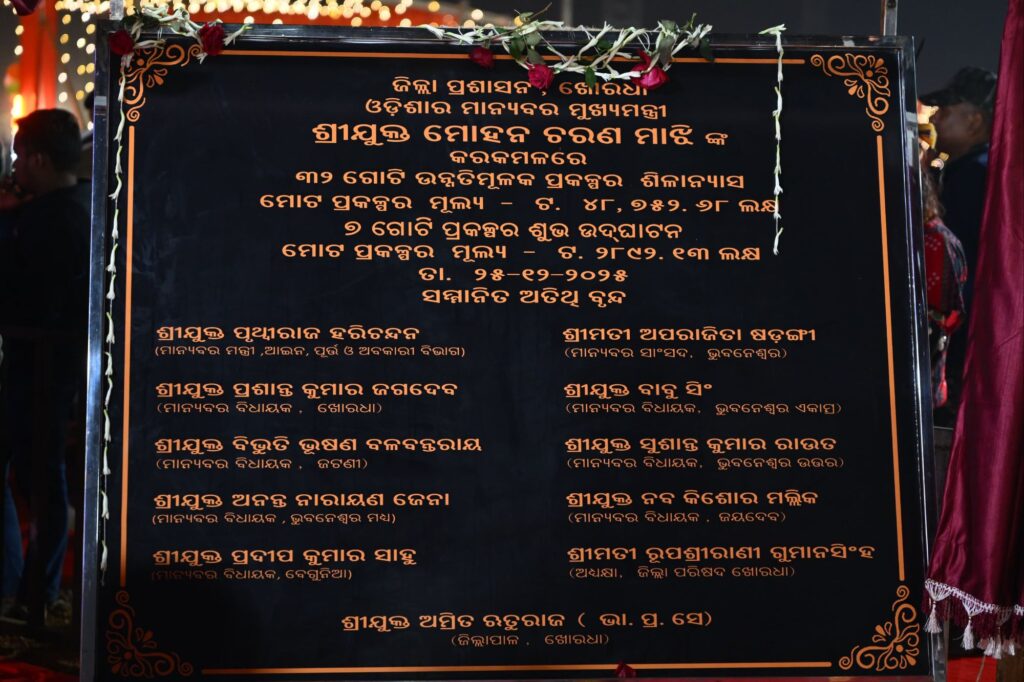 ଜିଲ୍ଲା ପ୍ରଶାସନ , ଖୋରଧା
ଓଡ଼ିଶାର ମାନ୍ୟବର ମୁଖ୍ୟମନ୍ତ୍ରୀ
ଶ୍ରୀଯୁକ୍ତ ମୋହନ ଚରଣ ମାଝି ଙ୍କ
କରକମଳରେ
୩୨ ଗୋଟି ଉନ୍ନତିମୂଳକ ପ୍ରକଳ୍ପର ଶିଳାନ୍ୟାସ
ମୋଟ ପ୍ରକଳ୍ପର ମୂଲ୍ୟ – ଟ. ୪୮, ୭୫୨. ୬୮ ଲକ୍ଷ
୭ ଗୋଟି ପ୍ରକଳ୍ପର ଶୁଭ ଉଦ୍‌ଘାଟନ
ମୋଟ ପ୍ରକଳ୍ପର ମୂଲ୍ୟ – ଟ. ୨୮୯୨. ୧୩ ଲକ୍ଷ
ତା. ୨୫-୧୨-୨୦୨୫
ସମ୍ମାନିତ ଅତିଥି ବୃନ୍ଦ
ଶ୍ରୀଯୁକ୍ତ ପୃଥ୍ୱୀରାଜ ହରିଚନ୍ଦନ
(ମାନ୍ୟବର ମନ୍ତ୍ରୀ ,ଆଇନ, ପୂର୍ତ୍ତ ଓ ଅବକାରୀ ବିଭାଗ)
ଶ୍ରୀମତୀ ଅପରାଜିତା ଷଡ଼ଙ୍ଗୀ
(ମାନ୍ୟବର ସାଂସଦ, ଭୁବନେଶ୍ୱର)
ଶ୍ରୀଯୁକ୍ତ ପ୍ରଶାନ୍ତ କୁମାର ଜଗଦେବ
(ମାନ୍ୟବର ବିଧାୟକ , ଖୋରଧା)
ଶ୍ରୀଯୁକ୍ତ ବାବୁ ସିଂ
(ମାନ୍ୟବର ବିଧାୟକ, ଭୁବନେଶ୍ୱର ଏକାମ୍ର)
ଶ୍ରୀଯୁକ୍ତ ବିଭୁତି ଭୂଷଣ ବଳବନ୍ତରାୟ
(ମାନ୍ୟବର ବିଧାୟକ , ଜଟଣୀ)
ଶ୍ରୀଯୁକ୍ତ ସୁଶାନ୍ତ କୁମାର ରାଉତ
(ମାନ୍ୟବର ବିଧାୟକ, ଭୁବନେଶ୍ୱର ଉତ୍ତର)
ଶ୍ରୀଯୁକ୍ତ ଅନନ୍ତ ନାରାୟଣ ଜେନା
(ମାନ୍ୟବର ବିଧାୟକ , ଭୁବନେଶ୍ୱର ମଧ୍ୟ)
ଶ୍ରୀଯୁକ୍ତ ନବ କିଶୋର ମଲ୍ଲିକ
(ମାନ୍ୟବର ବିଧାୟକ , ଜୟଦେବ)
ଶ୍ରୀଯୁକ୍ତ ପ୍ରଦୀପ କୁମାର ସାହୁ
(ମାନ୍ୟବର ବିଧାୟକ, ବେଗୁନିଆ)
ଶ୍ରୀମତୀ ରୂପଶ୍ରୀରାଣୀ ଗୁମାନସିଂହ
(ଅଧ୍ୟକ୍ଷା, ଜିଲ୍ଲା ପରିଷଦ ଖୋରଧା)
ଶ୍ରୀଯୁକ୍ତ ଅମ୍ରିତ ଋତୁରାଜ ( ଭା. ପ୍ର. ସେ)
(ଜିଲ୍ଲାପାଳ , ଖୋରଧା)